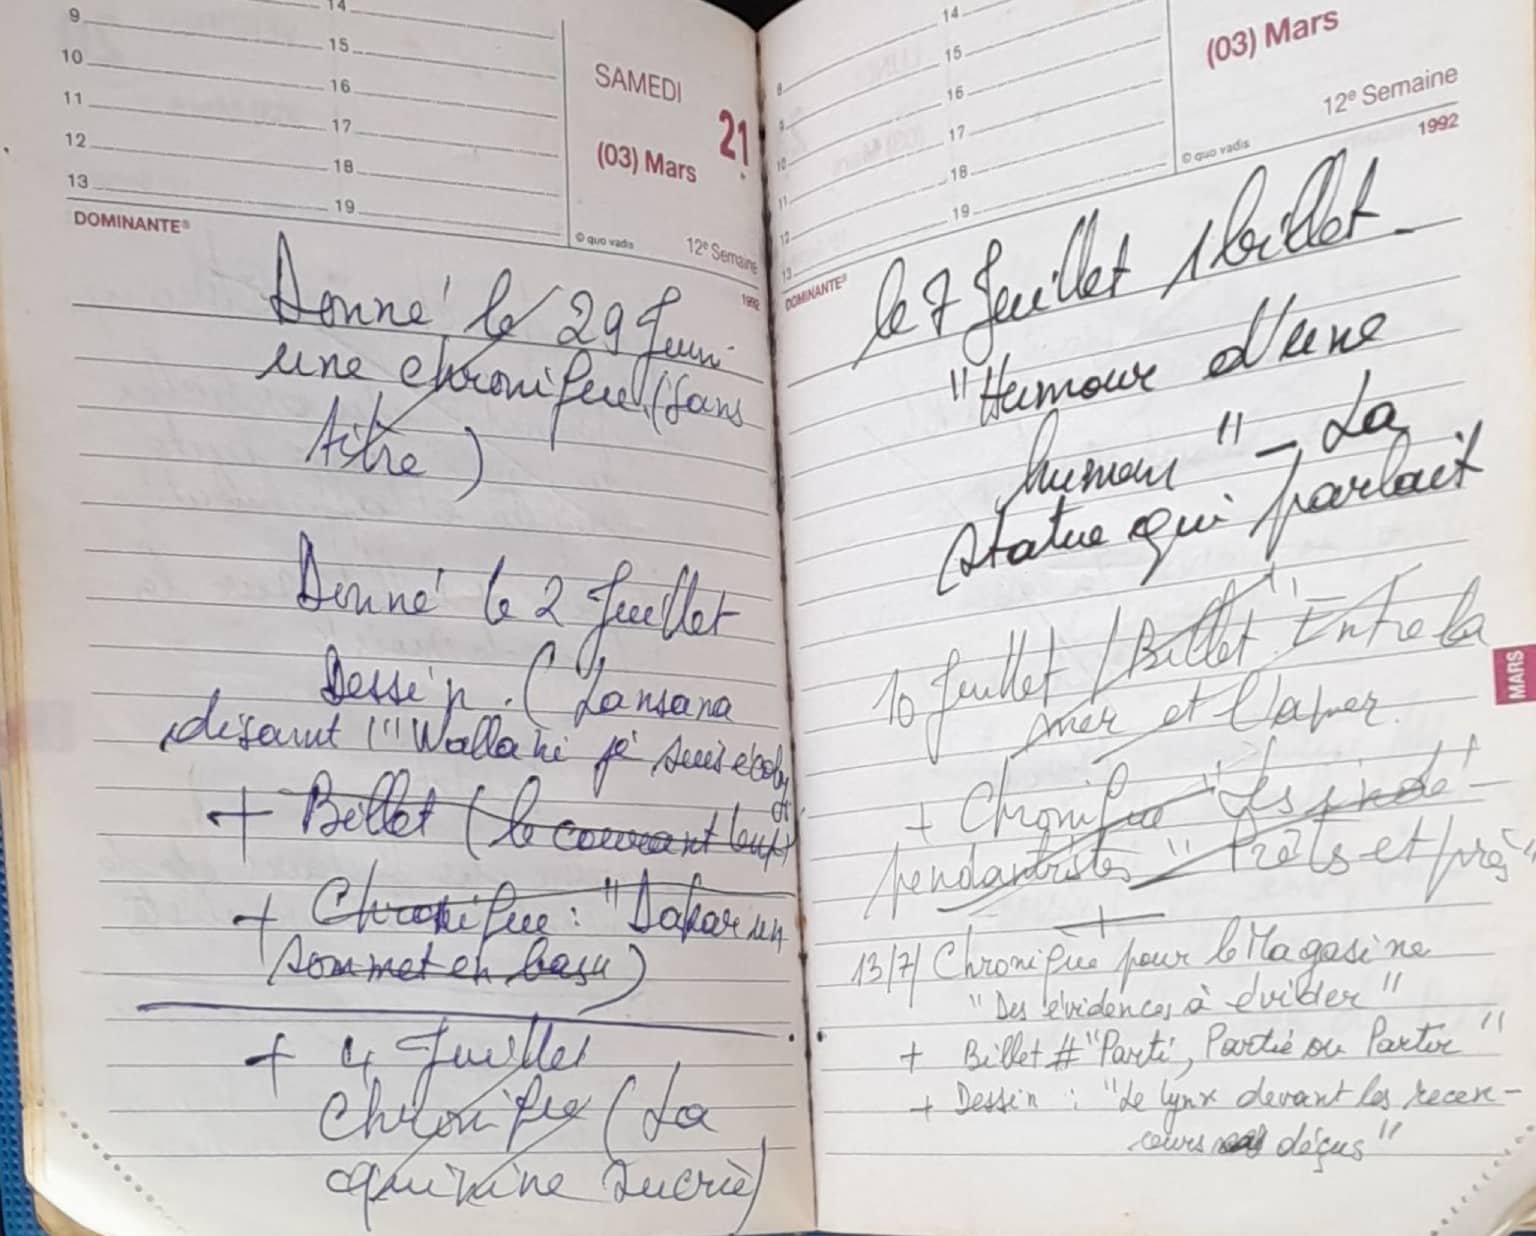 14
9
15
10
16
11
17
12
18
13
19
SAMEDI
21
(03) Mars
DOMINANTE®
© quo vadis
12e Semaine
1992
Donné le 29 Juin
une chronique (sans
titre)
Donné le 2 Juillet
Dessin. (Lansana
disant "Wallahi je suis écolo
+ Billet (le courant
+ Chronique: "Dakar un
sommet en
+ 4 Juillet
Chronique (La
quinine sucrée)
14
8
15
9
16
10
17
11
18
12
19
13
(03) Mars
12e Semaine
© quo vadis
1992
DOMINANTE®
le 7 Juillet 1 billet -
"Humour d'une
humeur" - La
statue qui parlait
10 Juillet / Billet "Entre la
mer et l'amer.
+ Chronique "Les indé-
pendantistes" Prêts et près"
+
13/7/ Chronique pour le Magasine
"Des évidences à évider"
+ Billet # "Parti, Partie ou Partir"
+ Dessin : "Le lynx devant les recen-
seurs déçus"
MARS